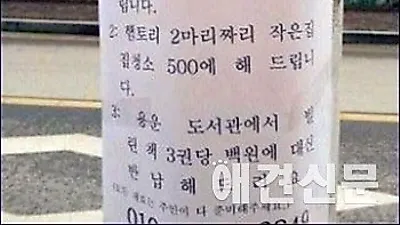 립니다.
2: 햄토리 2마리짜리 작은집
집청소 500에 헤 드립니
다.
3: 용운 도서관에서 빌
린 책 3권당 백원에 대신
반납 헤 드려요
주인이 다 준비해주세요
010
애견신문